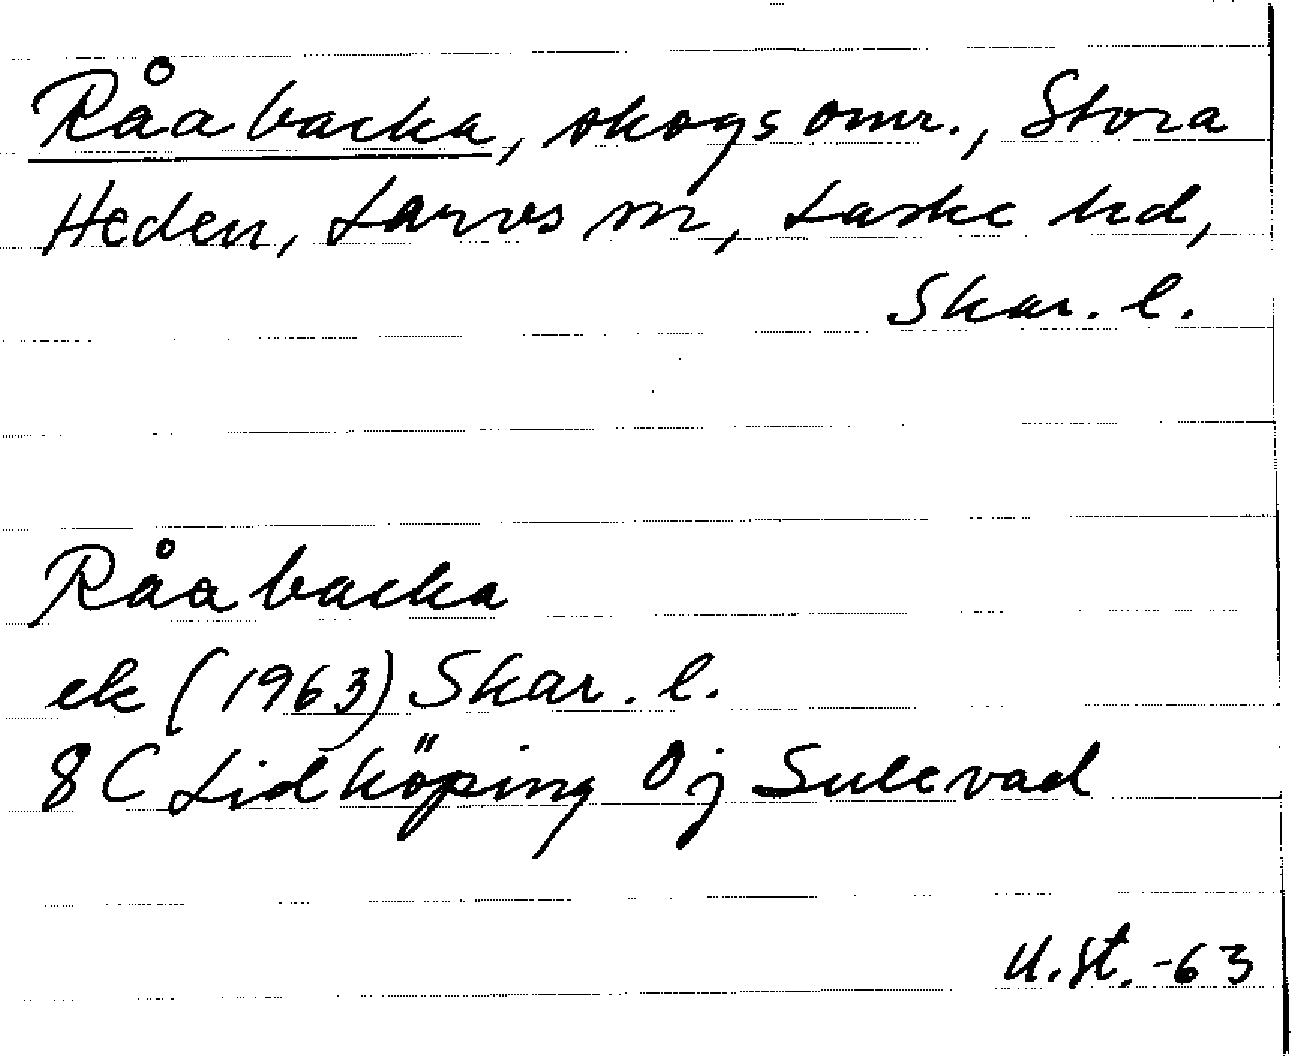 Råabacka, skogsomr., Stora
Heden, Larvs sn, Laske hd,
Skar. l.
Råabacka
ek (1963) Skar. l.
8 C Lidköping 0 j Sulevad
U. St. -63